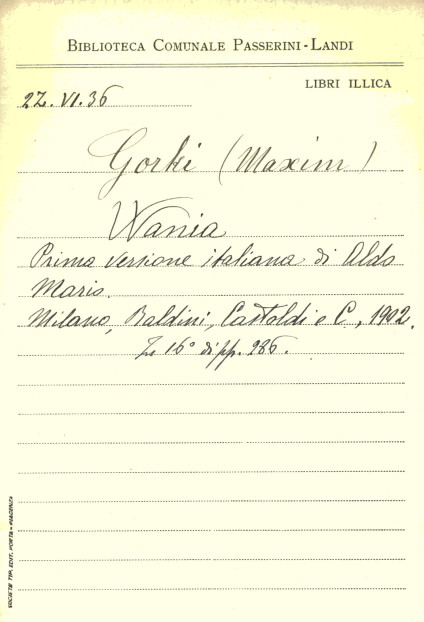 BIBLIOTECA COMUNALE PASSERINI-LANDI
LIBRI ILLICA
22. VI. 36
Gorki (Maxim)
Wania
Prima versione italiana di Aldo
Maris.
Milano, Baldini, Castoldi e C., 1902.
In 16° di pp. 286.
SOCIETÀ TIP. EDIT. PORTA - PIACENZA